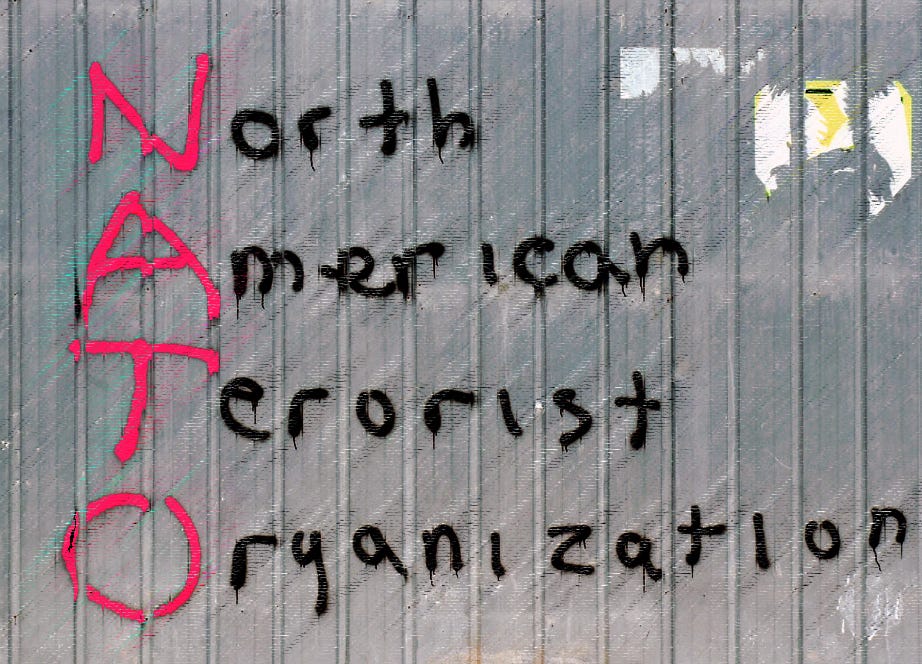 North
American
Terorist
Organization